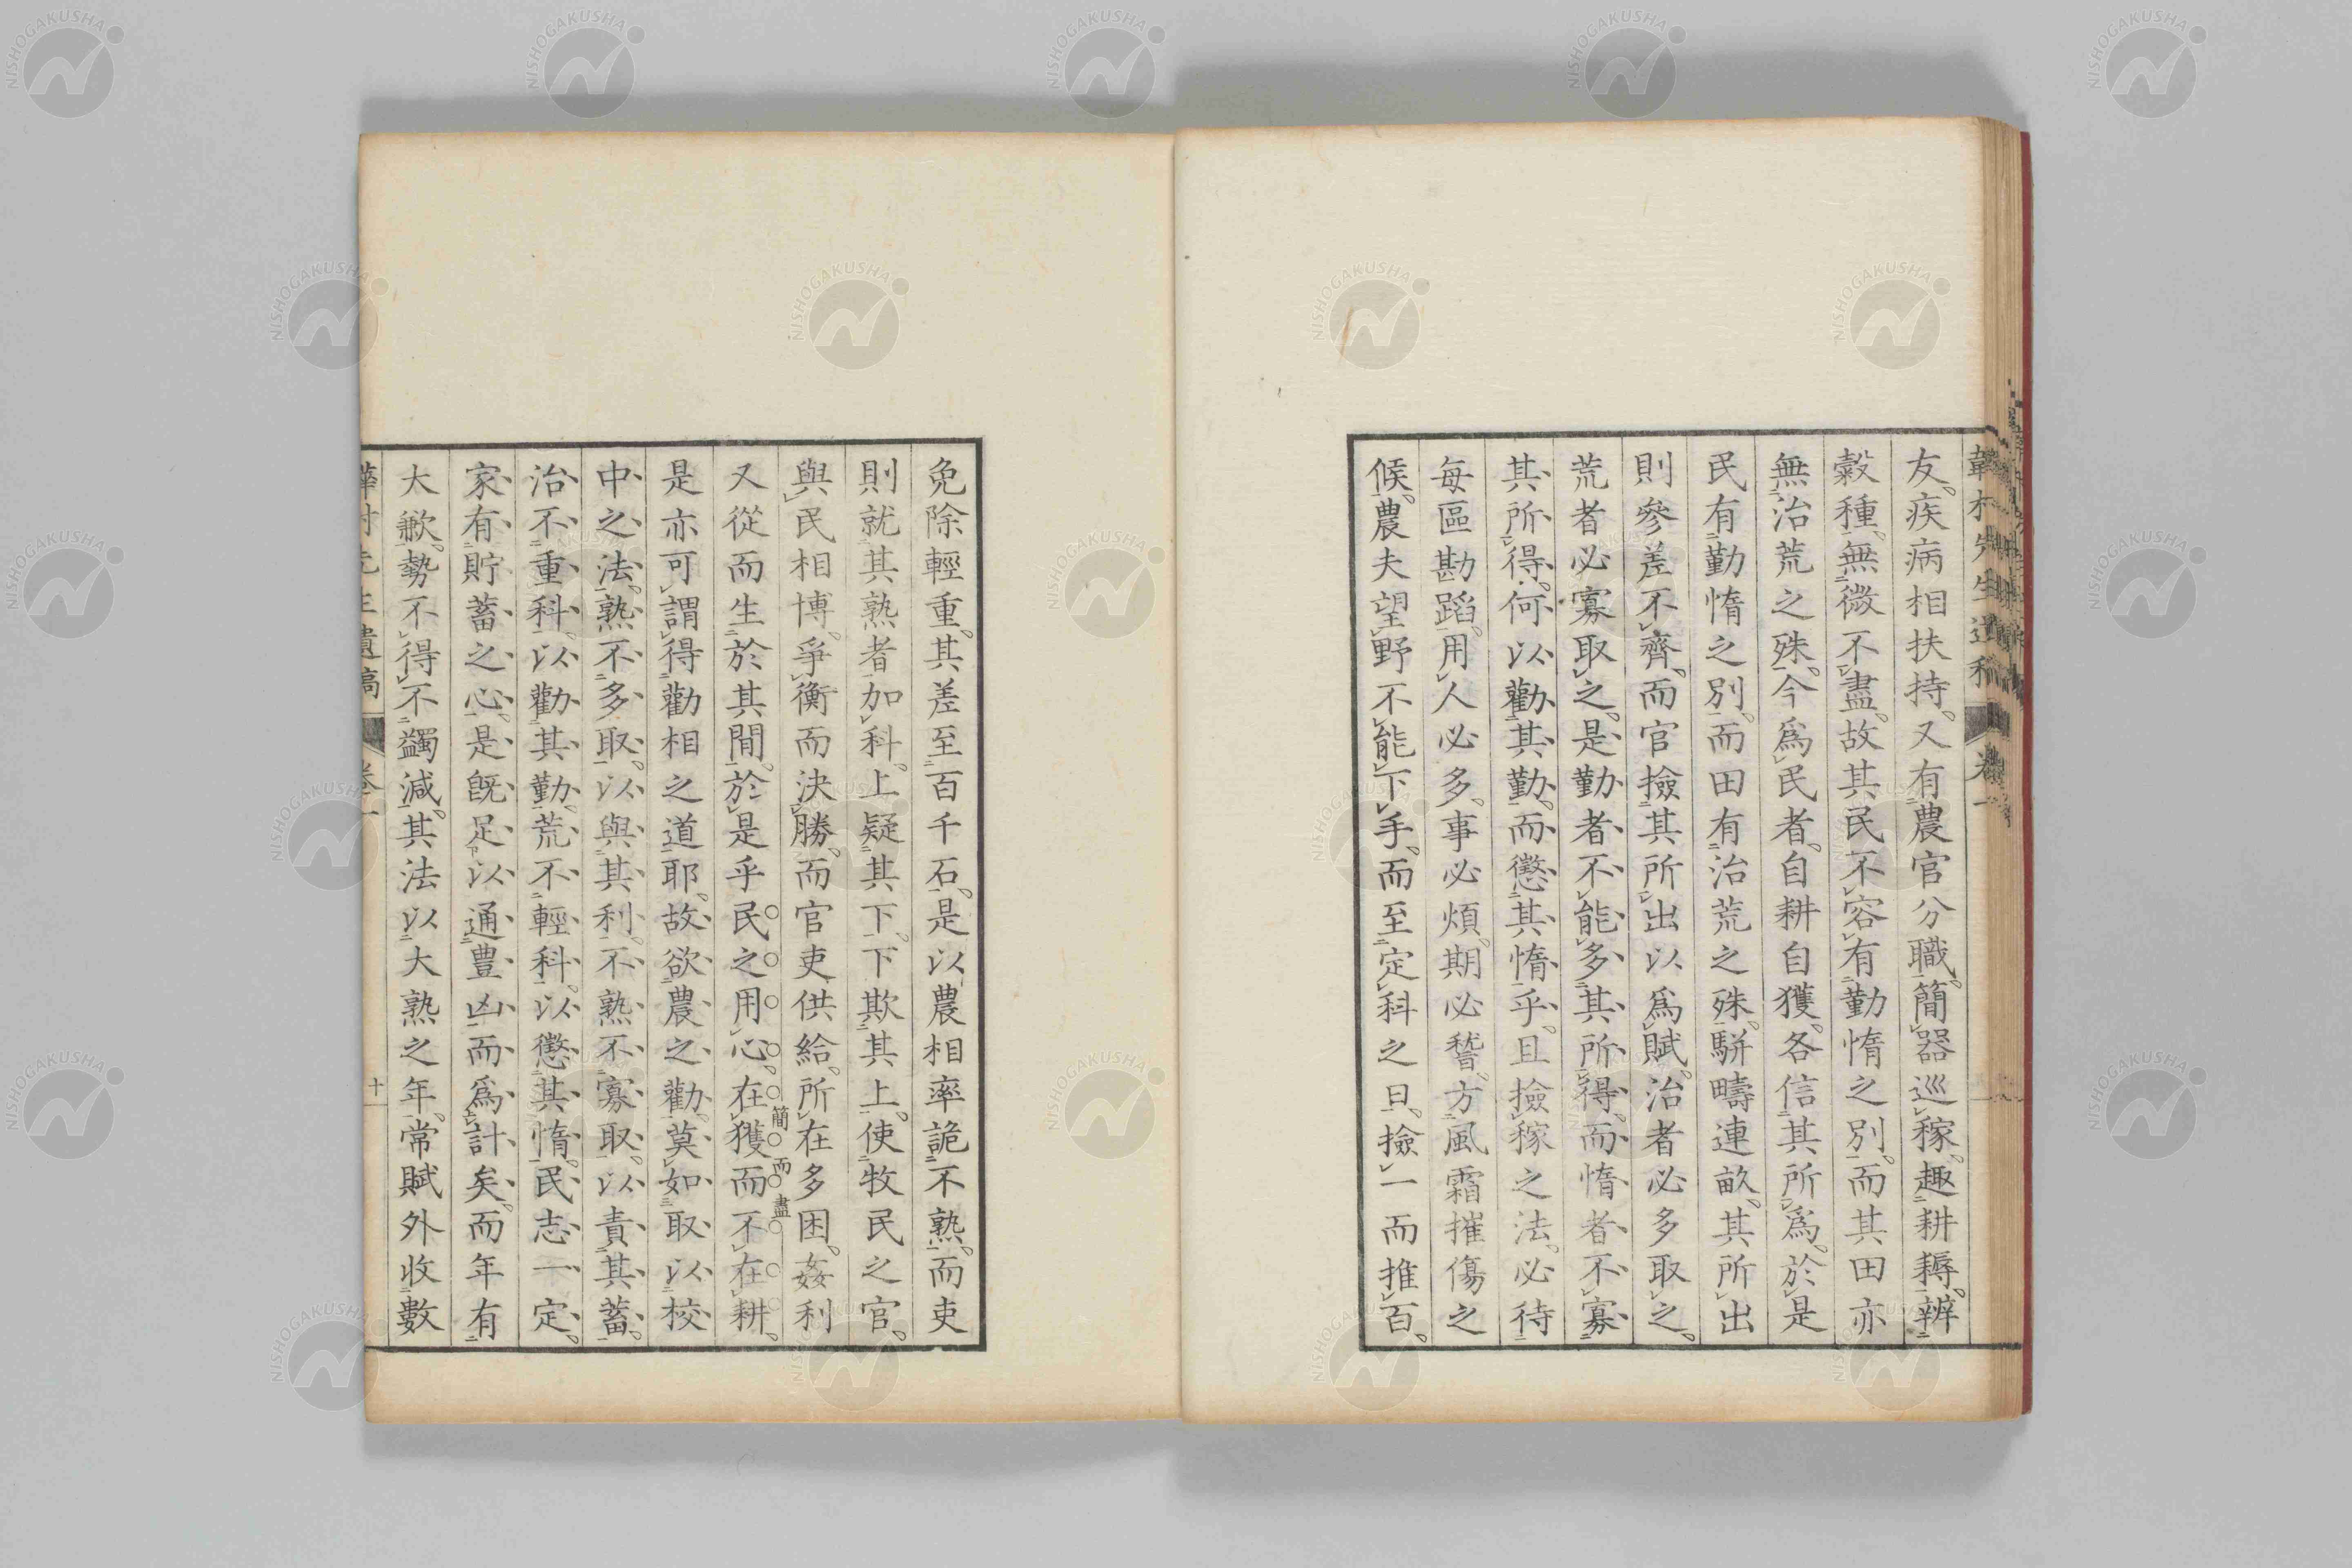 友。疾病相扶持。又有農官分職。簡器巡稼。趣耕耨。辨
穀種。無微不盡。故其民不容有勤惰之別。而其田亦
無治荒之殊。今爲民者。自耕自獲。各信其所爲。於是
民有勤惰之別。而田有治荒之殊。駢疇連畝。其所出
則參差不齊。而官撿其所出以爲賦。治者必多取之。
荒者必寡取之。是勤者不能多其所得。而惰者不寡
其所得。何以勸其勤。而懲其惰乎。且撿稼之法。必待
每區勘蹈。用人必多。事必煩。期必稽。方風霜摧傷之
候。農夫望野不能下手。而至定科之日。撿一而推百。
免除輕重。其差至百千石。是以農相率詭不熟。而吏
則就其熟者加科。上疑其下。下欺其上。使牧民之官。
與民相博。爭衡而決勝。而官吏供給。所在多困。姦利
又從而生於其間。於是乎民之用心。在獲而不在耕。
簡而盡
是亦可謂得勸相之道耶。故欲農之勸。莫如取以校
中之法。熟不多取。以與其利。不熟不寡取。以責其蓄。
治不重科。以勸其勤。荒不輕科。以懲其惰。民志一定。
家有貯蓄之心。是既足以通豊凶而爲計矣。而年有
大歉。勢不得不蠲減。其法以大熟之年。常賦外收數
卷一
十
NISHOGAKUSHA